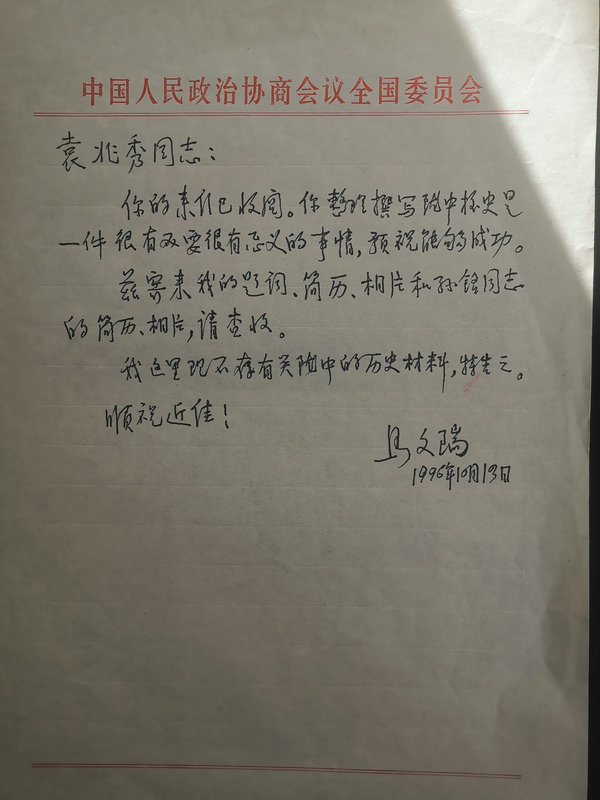 中国人民政治协商会议全国委员会
袁兆秀同志：
你的来信已收阅。你整理撰写陇中校史是
一件很有必要很有意义的事情，预祝能够成功。
兹寄来我的题词、简历、相片和孙铭同志
的简历、相片，请查收。
我这里现不存有关陇中的历史材料，特告之。
顺祝近佳！
马文瑞
1996年10月13日